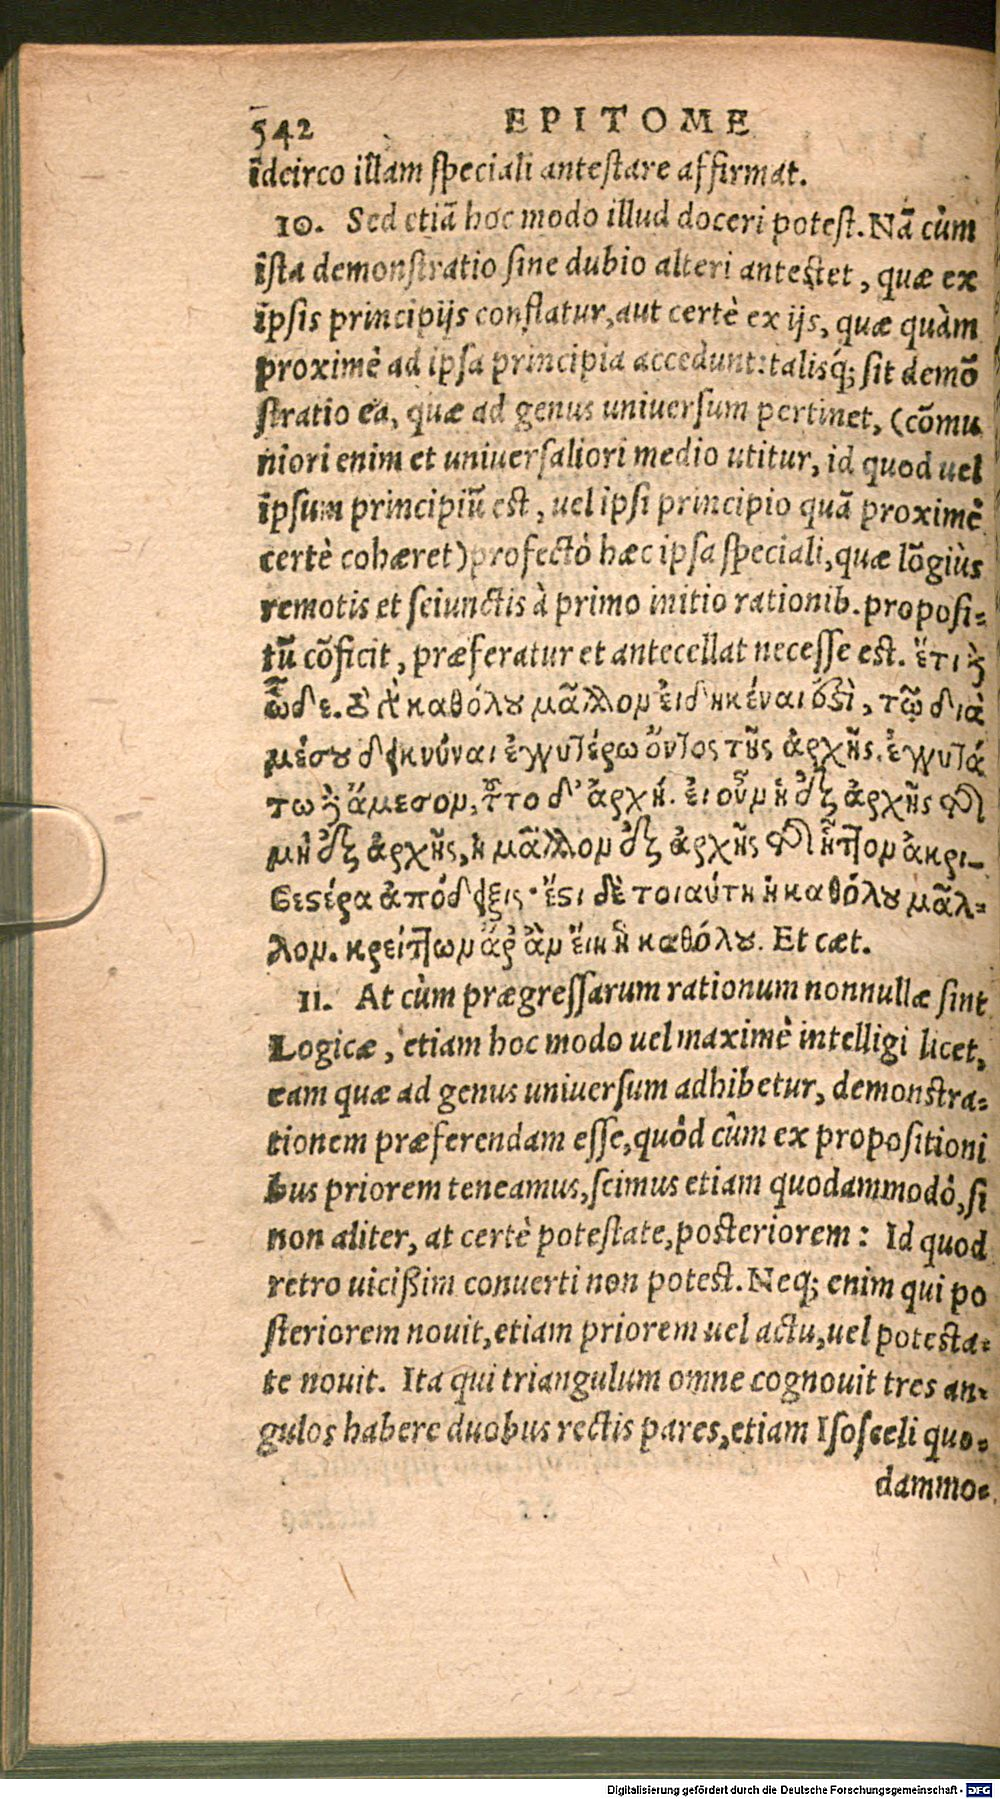 542 EPITOME
idcirco illam speciali antestare affirmat.
10. Sed etiã hoc modo illud doceri potest. Nã cùm
ista demonstratio sine dubio alteri antestet, quæ ex
ipsis principijs conflatur, aut certè ex ijs, quæ quàm
proximè ad ipsa principia accedunt: talisq́; sit demõ
stratio ea, quæ ad genus uniuersum pertinet, (cõmu
niori enim et uniuersaliori medio utitur, id quod uel
ipsum principiũ est, uel ipsi principio quã proximè
certè cohæret) profectò hæc ipsa speciali, quæ lõgiùs
remotis et seiunctis à primo initio rationib. proposi-
tũ cõficit, præferatur et antecellat necesse est. ἔτι ϗ
ὧδε. τὸ γὰρ καθόλου μᾶλλον δεικνύναι ἐστὶ, τῷ διὰ
μέσου δεικνύναι ἐγγυτέρω ὄντος τῆς ἀρχῆς. ἐγγυτά
τω ϗ ἄμεσον, τοῦτο δ' ἀρχή. εἰ οὖν ἡ ἐξ ἀρχῆς τῆς
μὴ ἐξ ἀρχῆς, ἡ μᾶλλον ἐξ ἀρχῆς τῆς ἧττον ἀκρι-
βεστέρα ἀπόδειξις· ἔστι δὲ τοιαύτη ἡ καθόλου μᾶλ-
λον. κρείττων ἄρ' ἂν εἴη ἡ καθόλου. Et cæt.
11. At cùm prægressarum rationum nonnullæ sint
Logicæ, etiam hoc modo uel maximè intelligi licet,
eam quæ ad genus uniuersum adhibetur, demonstra-
tionem præferendam esse, quòd cùm ex propositioni
bus priorem teneamus, scimus etiam quodammodò, si
non aliter, at certè potestate, posteriorem: Id quod
retro uicißim conuerti non potest. Neq; enim qui po
steriorem nouit, etiam priorem uel actu, uel potesta-
te nouit. Ita qui triangulum omne cognouit tres an-
gulos habere duobus rectis pares, etiam Isosceli quo-
dammo-
Digitalisierung gefördert durch die Deutsche Forschungsgemeinschaft - DFG